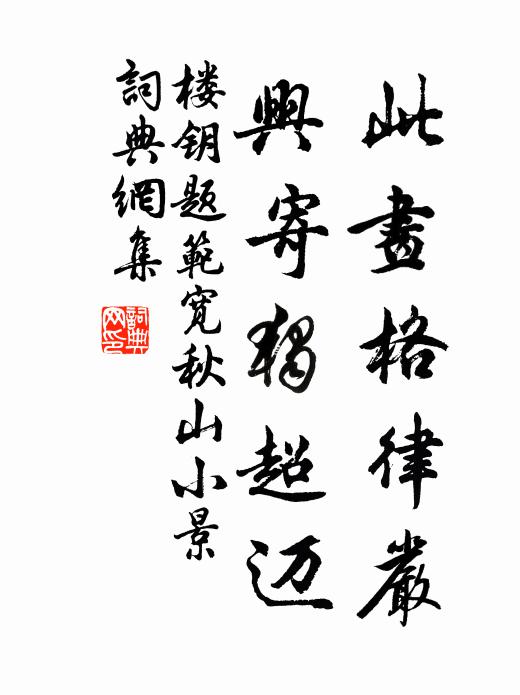 此畫格律嚴
興寄獨超迈
楼钥题範宽秋山小景
詞典網集
詞典网印